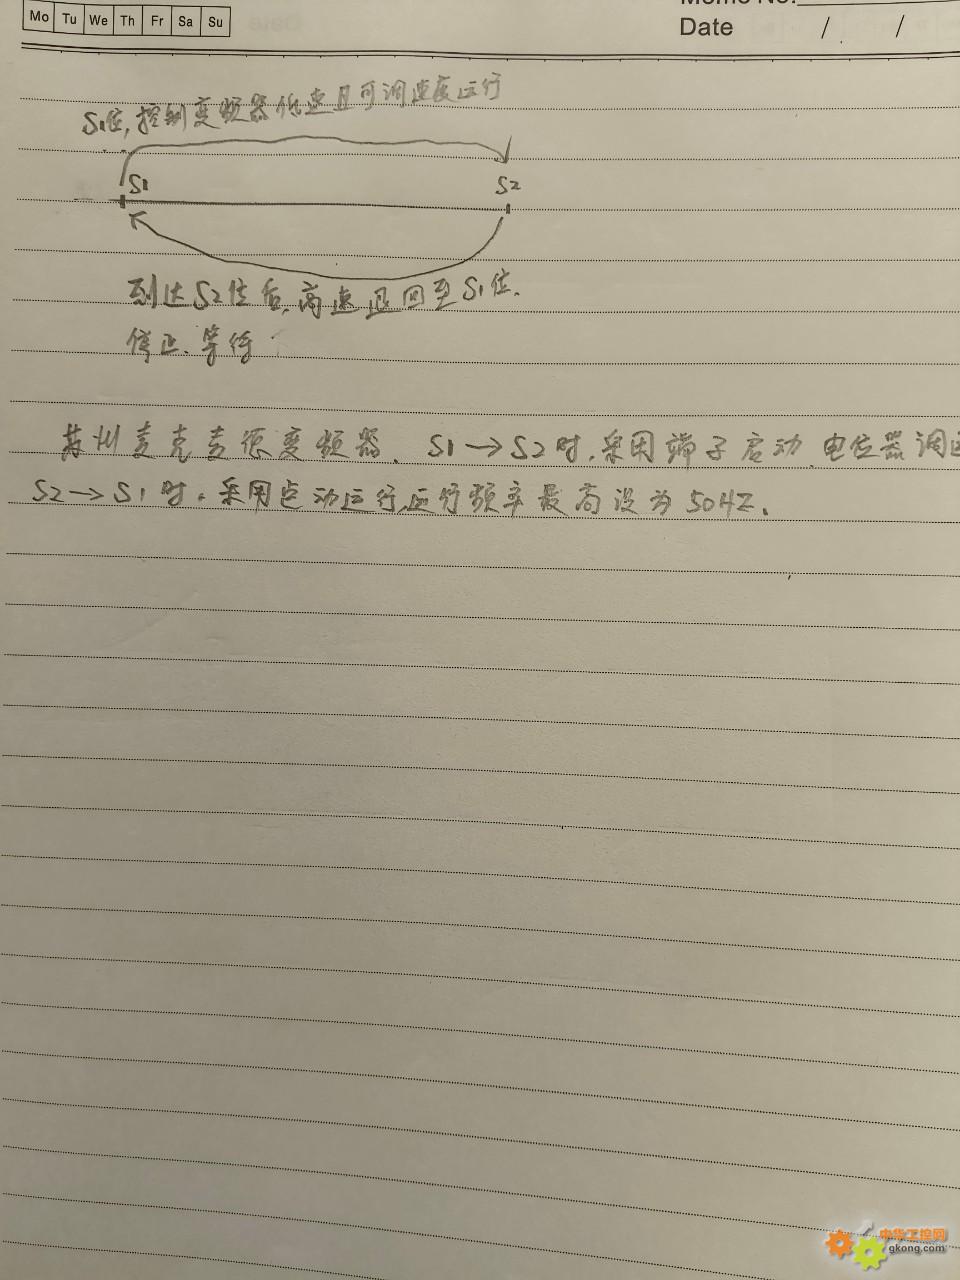 Mo Tu We Th Fr Sa Su
Memo No.
Date / /
S1位,控制变频器低速且可调速度运行
S1 S2
到达S2位后,高速退回至S1位.
停止.等待
苏州麦克麦很变频器. S1→S2时.采用端子启动.电位器调
S2→S1时.采用点动运行,运行频率最高设为50HZ.
中华工控网
gkong.com